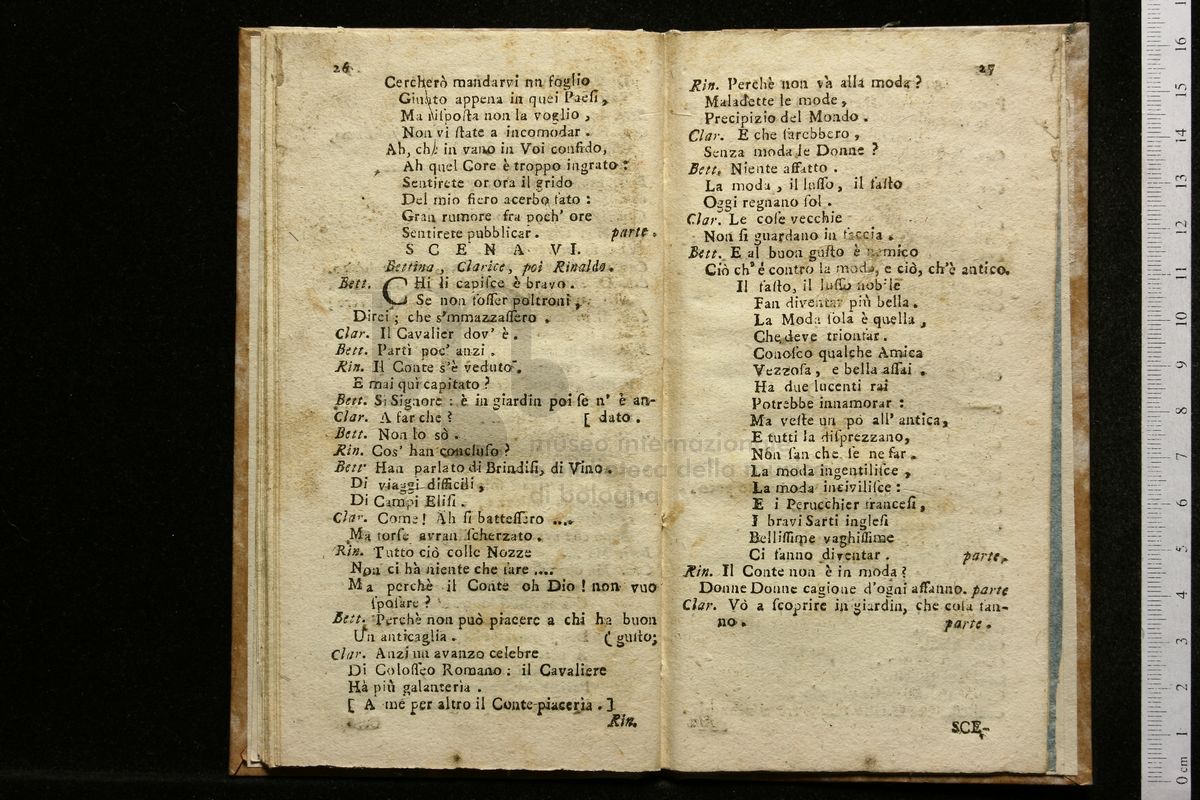 26
Cercherò mandarvi nn foglio
Giunto appena in quei Paeſi,
Ma riſpoſta non la voglio,
Non vi ſtate a incomodar.
Ah, che in vano in Voi confido,
Ah quel Core è troppo ingrato:
Sentirete or ora il grido
Del mio fiero acerbo fato:
Gran rumore fra poch' ore
Sentirete pubblicar. parte.
SCENA VI.
Bettina, Clarice, poi Rinaldo.
Bett. CHi li capiſce è bravo.
Se non foſſer poltroni,
Direi; che s'mmazzaſſero.
Clar. Il Cavalier dov' è.
Bett. Partì poc' anzi.
Rin. Il Conte s'è veduto.
E mai quì capitato?
Bett. Si Signore: è in giardin poi ſe n' è an-
Clar. A far che? [ dato.
Bett. Non lo sò.
Rin. Cos' han concluſo?
Bett Han parlato di Brindiſi, di Vino.
Di viaggi difficili,
Di Campi Eliſi.
Clar. Come! Ah ſi batteſſero ....
Ma forſe avran ſcherzato.
Rin. Tutto ciò colle Nozze
Non ci hà niente che fare ....
Ma perchè il Conte oh Dio! non vuo
ſpoſare?
Bett. Perchè non può piacere a chi ha buon
Un anticaglia. ( guſto;
Clar. Anzi un avanzo celebre
Di Coloſſeo Romano: il Cavaliere
Hà più galanteria.
[ A me per altro il Conte piaceria. ]
Rin.
27
Rin. Perchè non và alla moda?
Maladette le mode,
Precipizio del Mondo.
Clar. E che ſarebbero,
Senza moda le Donne?
Bett. Niente affatto.
La moda, il luſſo, il faſto
Oggi regnano ſol.
Clar. Le coſe vecchie
Non ſi guardano in faccia.
Bett. E al buon guſto è nemico
Ciò ch' é contro la moda, e ciò, ch'è antico.
Il faſto, il luſſo nobile
Fan diventar più bella.
La Moda ſola è quella,
Che deve trionfar.
Conoſco qualche Amica
Vezzoſa, e bella aſſai.
Ha due lucenti rai
Potrebbe innamorar:
Ma veſte un pò all' antica,
E tutti la diſprezzano,
Non ſan che ſe ne far.
La moda ingentiliſce,
La moda inciviliſce:
E i Perucchier franceſi,
I bravi Sarti ingleſi
Belliſſime vaghiſſime
Ci fanno diventar. parte.
Rin. Il Conte non è in moda?
Donne Donne cagione d'ogni affanno. parte
Clar. Vò a ſcoprire in giardin, che coſa fan-
no. parte.
SCE-
museo internazionale
di bologna
0 cm 1 2 3 4 5 6 7 8 9 10 11 12 13 14 15 16